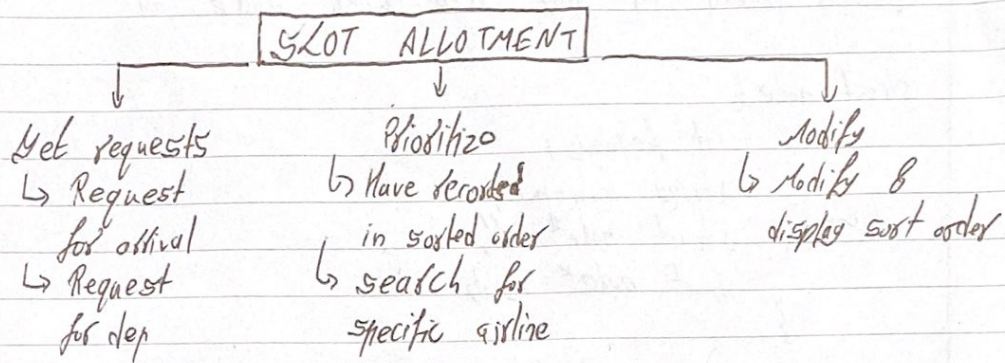 SLOT ALLOTMENT
Get requests
↳ Request
for arrival
↳ Request
for dep
Prioritize
↳ Have recorded
in sorted order
↳ search for
specific airline
Modify
↳ Modify &
display sort order